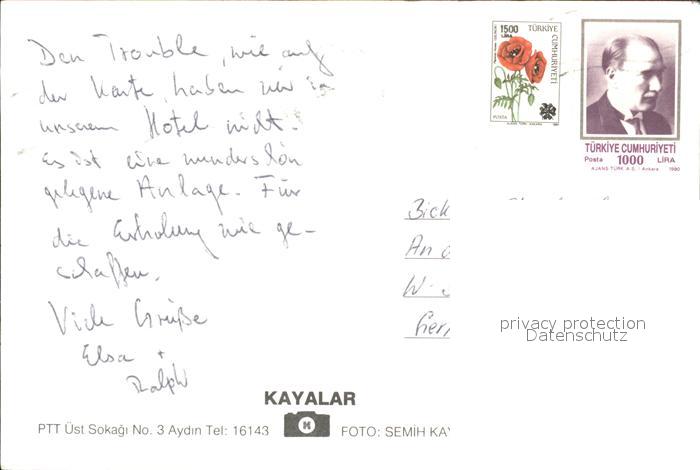 Den Trouble, wie auf
der Karte, haben wir in
unserem Hotel nicht.
Es ist eine wunderschön
gelegene Anlage. Für
die Erholung wie ge-
schaffen.
Viele Grüße
Elsa +
Ralph
1500
LIRA
TÜRKİYE CUMHURİYETİ
POSTA
AJANS TÜRK - ANKARA
TÜRKİYE CUMHURİYETİ
Posta 1000 LİRA
AJANS TÜRK A.Ş. / Ankara 1990
Bick
An
W-
Ger
privacy protection
Datenschutz
KAYALAR
PTT Üst Sokağı No. 3 Aydın Tel: 16143 FOTO: SEMİH KAY